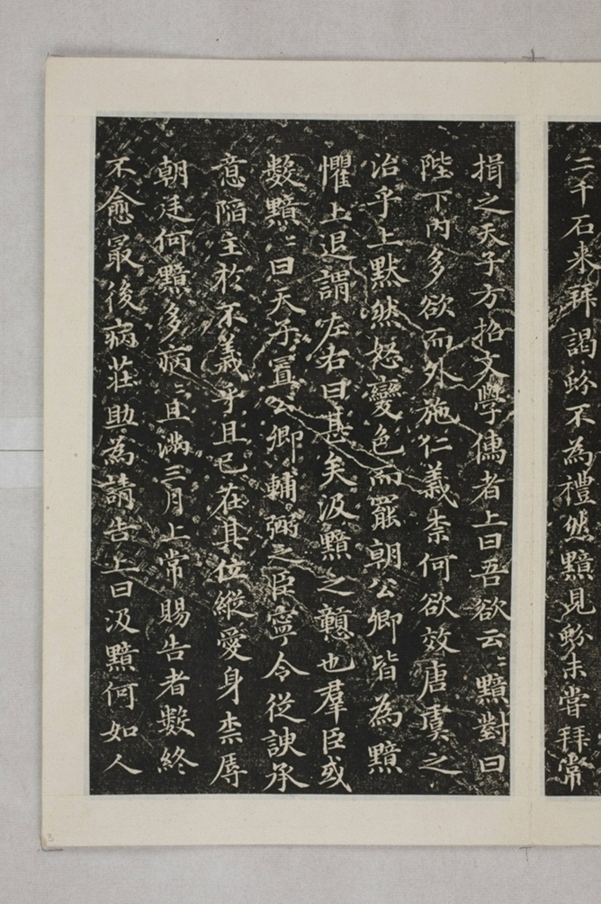 二千石来拜謁蚡不為禮然黯見蚡未嘗拜常
揖之天子方招文學儒者上曰吾欲云〻黯對曰
陛下内多欲而外施仁義柰何欲效唐虞之
治乎上默然怒變色而罷朝公卿皆為黯
懼上退謂左右曰甚矣汲黯之戇也羣臣或
數黯〻曰天子置公卿輔弼之臣寧令從諛承
意陷主於不義乎且已在其位縱愛身柰辱
朝廷何黯多病〻且滿三月上常賜告者數終
不愈最後病莊助為請告上曰汲黯何如人